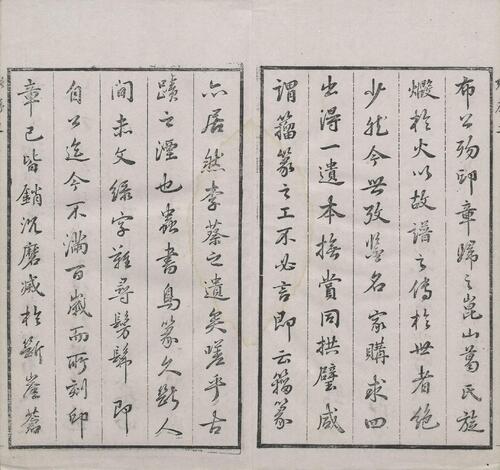 布公殁印章歸之崑山葛氏旋
燬於火以故譜之傳於世者絶
少然今世孜鉴名家購求四
出得一遺本撫賞同拱璧咸
謂籀篆之工不必言即云籀篆
亦居然李蔡之遺矣嗟乎古
蹟之湮也蟲書鳥篆久斷人
間赤文緑字難尋髣髴即
自公迄今不滿百歲而所刻印
章已皆銷沉磨滅於斷崖蒼